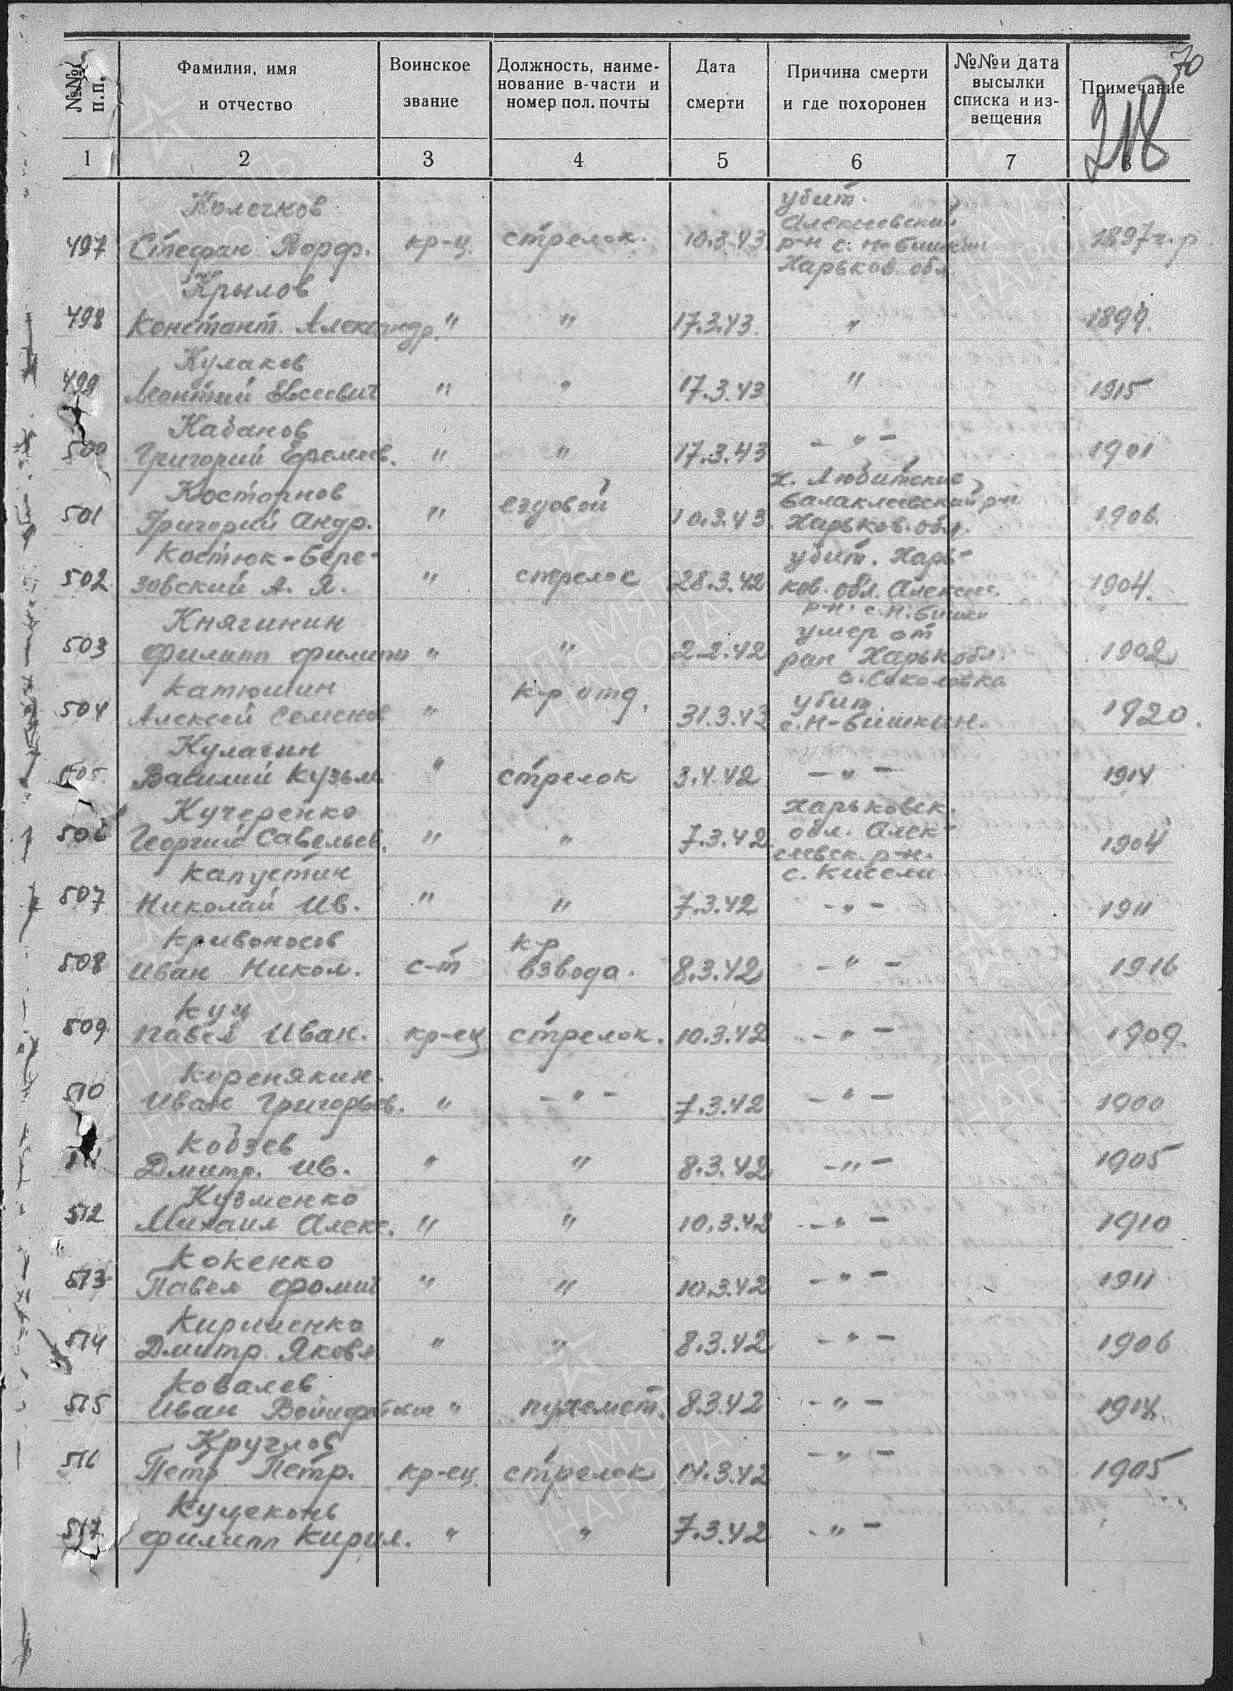 70
№№ п.п.
Фамилия, имя и отчество
Воинское звание
Должность, наименование в-части и номер пол. почты
Дата смерти
Причина смерти и где похоронен
№№ и дата высылки списка и извещения
Примечание
218
1 2 3 4 5 6 7 8
Колечков убит.
Алексеевский
497 Стефан Порф. кр-ц. стрелок. 10.3.43 р-н с. Н-Бишкин 1897 г.р.
Крылов Харьков. обл.
498 Констант. Александр. " " 17.3.43. "
Кулаков
499 Леонтий Евсеевич " " 17.3.43 " 1915
Кабанов
500 Григорий Еремеев. " " 17.3.43 - " - 1901
х.
501 Григорий Андр. " ездовой 10.3.43. Балаклеевский р-н 1906.
Харьков. обл.
Костюк-Бере- убит. Харь-
502 зовский А. Я. " стрелок 28.3.42 ков. обл. Алексеев. 1904.
р-н. с. Н. Бишки
Княгинин умер от
503 Филипп Филипп " " 2-2.42 ран Харьк обл. 1902
с. Соколовка
Катюшин к-р отд. убит
504 Алексей Семенов " 31.3.43 с. Н-Бишкин. 1920.
Кулагин
505 Василий Кузьм. " стрелок 3.4.42 - " - 1914
Кучеренко Харьковск.
506 Георгий Савельев. " " 7.3.42 обл. Алек- 1904
сеевск. р-н.
Капустин с. Кисели
507 Николай Ив. " " 7.3.42 - " - 1911
Кривоносов к-р
508 Иван Никол. с-т взвода. 8.3.42 - " - 1916
Куц
509 Павел Иван. кр-ец стрелок. 10.3.42 - " - 1909.
Коренякин.
510 Иван Григорьев. " - " - 7.3.42 - " - 1900
Кобзев
511 Дмитр. Ив. " " 8.3.42 - " - 1905
Кузменко
512 Михаил Алекс. " " 10.3.42 - " - 1910
Кокенко
513 Павел Фомич " " 10.3.42 - " - 1911
Кириченко
514 Дмитр. Яковл " " 8.3.42 - " - 1906
Ковалев
515 Иван " пулемет. 8.3.42 - " - 1914
Круглов
516 Петр Петр. кр-ец. стрелок 14.3.42 - " - 1905
Куцеконь
517 Филипп Кирил. " " 7.3.42 - " -